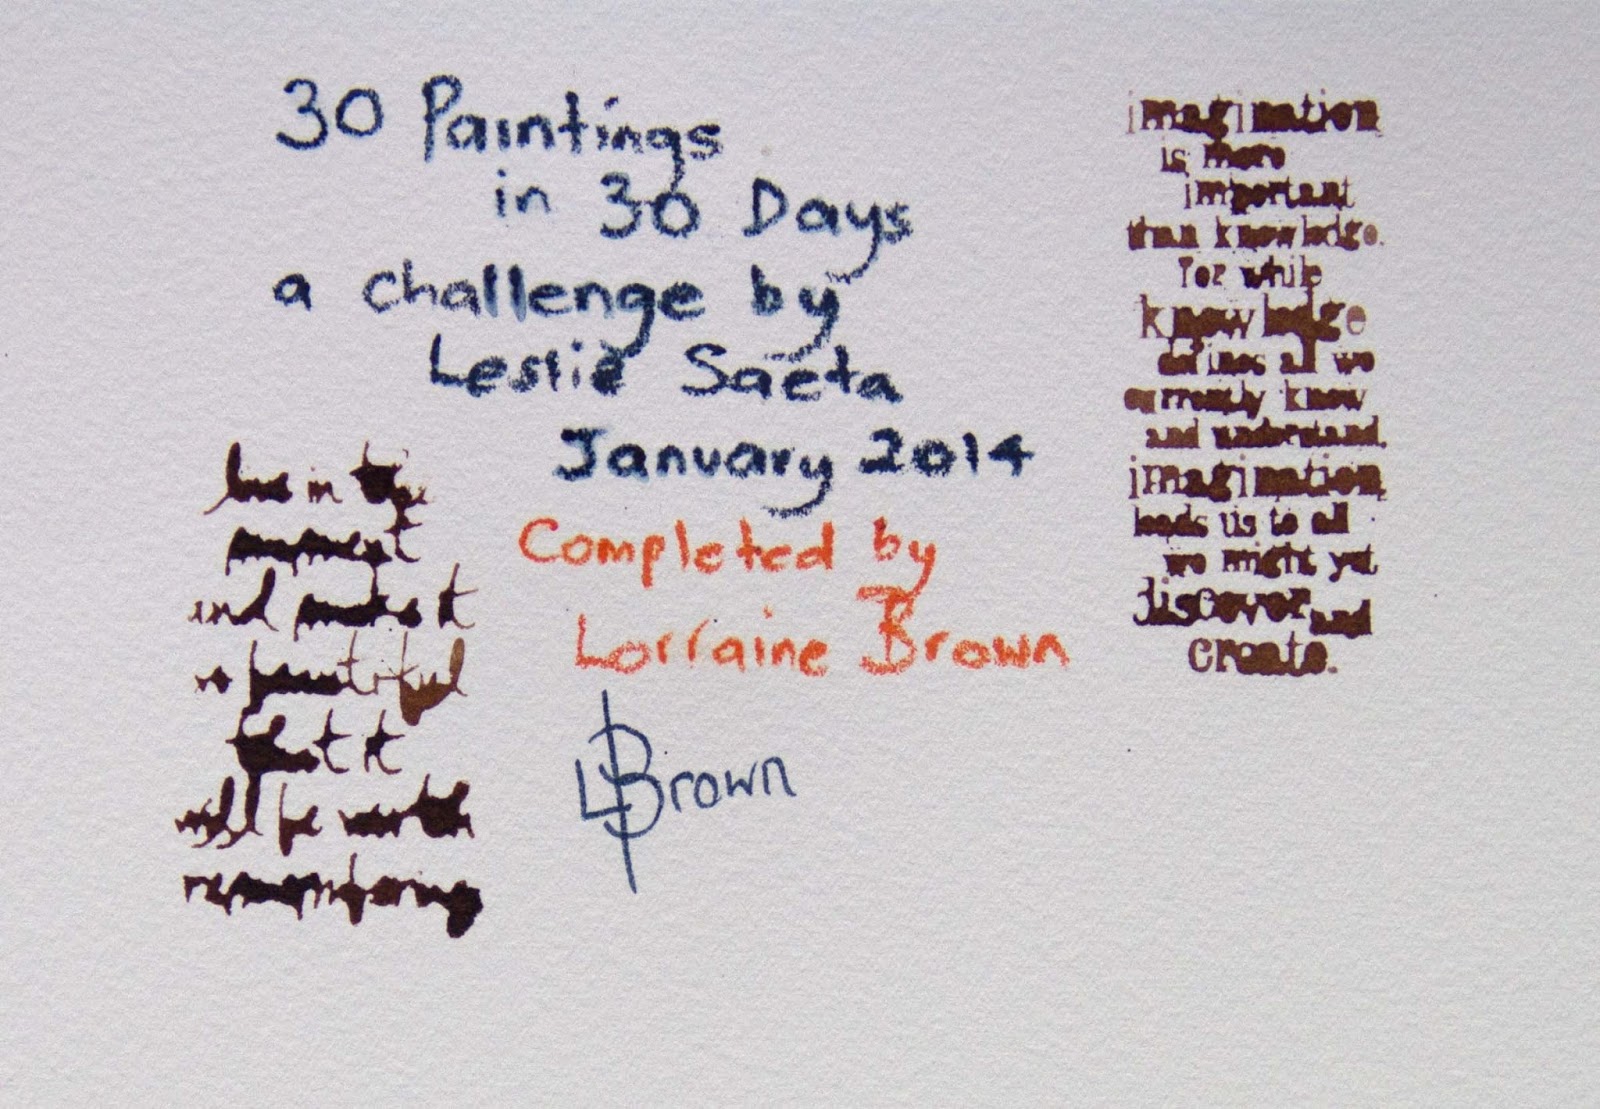 30 Paintings
in 30 Days
a challenge by
Leslie Saeta
January 2014
Completed by
Lorraine Brown
LBrown
live in the
moment
and make it
so beautiful
that it
will be worth
remembering
imagination
is more
important
than knowledge.
For while
knowledge
defines all we
currently know
and understand.
imagination
leads us to all
we might yet
discover and
create.